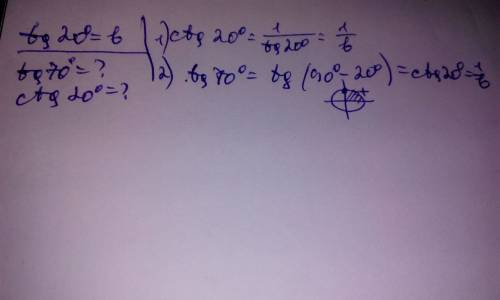 tg 20° = b
tg 70° = ?
ctg 20° = ?
1) ctg 20° = 1/tg 20° = 1/b
2) tg 70° = tg (90° - 20°) = ctg 20° = 1/b